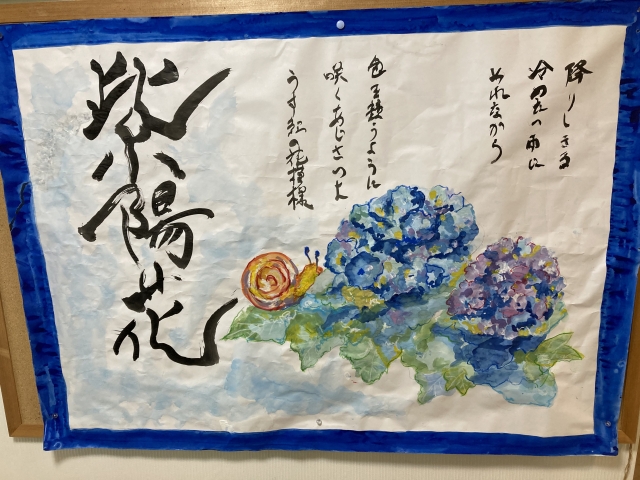 降りしきる
冷めたい雨に
ぬれながら
色を競うように
咲くあじさいよ
うす紅の花模様
紫陽花